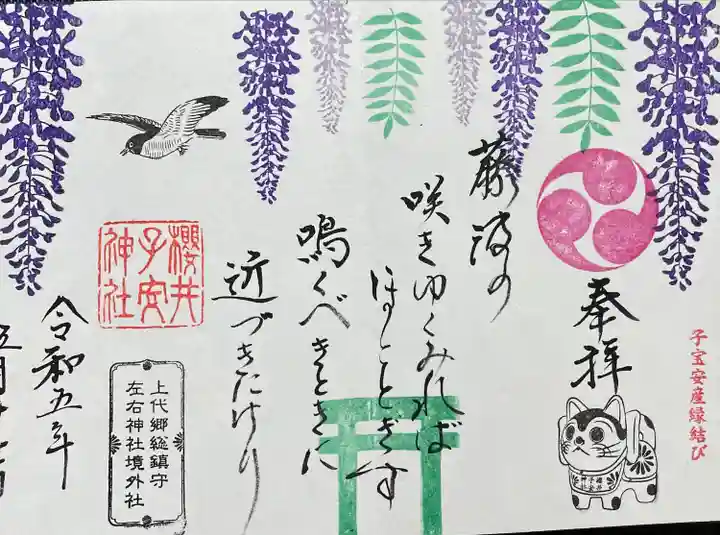 子宝安産縁結び
奉拝
櫻井
子安
神社
藤波の
咲きゆくみれば
ほととぎす
鳴くべきときに
近づきにけり
櫻井
子安
神社
上代郷総鎮守
左右神社境外社
令和五年